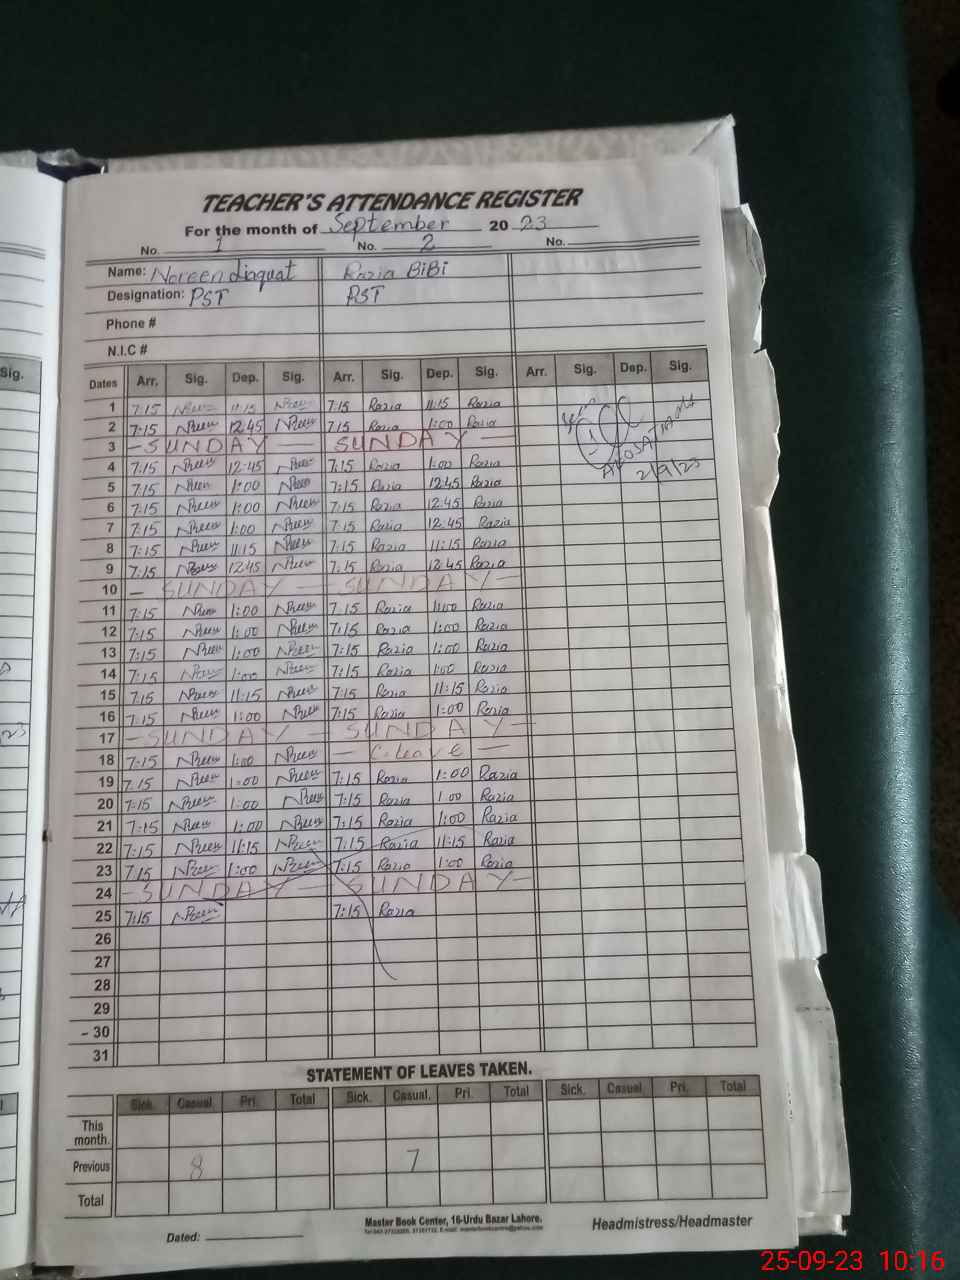 TEACHER'S ATTENDANCE REGISTER
For the month of September 20 23
No. 1 No. 2 No.
Name: Noreen Liaquat Razia BiBi
Designation: PST PST
Phone #
N.I.C #
Sig.
Dates Arr. Sig. Dep. Sig. Arr. Sig. Dep. Sig. Arr. Sig. Dep. Sig.
1 7:15 11:15 7:15 Razia 11:15 Razia
2 7:15 12:45 7:15 Razia 1:00 Razia
3 - SUNDAY - SUNDAY -
4 7:15 12:45 7:15 Razia 1:00 Razia
2/9/23
5 7:15 1:00 7:15 Razia 12:45 Razia
6 7:15 1:00 7:15 Razia 12:45 Razia
7 7:15 1:00 7:15 Razia 12:45 Razia
8 7:15 11:15 7:15 Razia 11:15 Razia
9 7:15 12:45 7:15 Razia 12:45 Razia
10 - SUNDAY - SUNDAY -
11 7:15 1:00 7:15 Razia 1:00 Razia
12 7:15 1:00 7:15 Razia 1:00 Razia
13 7:15 1:00 7:15 Razia 1:00 Razia
14 7:15 1:00 7:15 Razia 1:00 Razia
15 7:15 11:15 7:15 Razia 11:15 Razia
16 7:15 1:00 7:15 Razia 1:00 Razia
17 - SUNDAY - SUNDAY -
18 7:15 1:00 - C.leave -
19 7:15 1:00 7:15 Razia 1:00 Razia
20 7:15 1:00 7:15 Razia 1:00 Razia
21 7:15 1:00 7:15 Razia 1:00 Razia
22 7:15 11:15 7:15 Razia 11:15 Razia
23 7:15 1:00 7:15 Razia 1:00 Razia
24 - SUNDAY - SUNDAY -
25 7:15 7:15 Razia
26
27
28
29
30
31
STATEMENT OF LEAVES TAKEN.
Sick. Casual. Pri. Total Sick. Casual. Pri. Total Sick. Casual. Pri. Total
This month.
Previous 8 7
Total
Master Book Center, 16-Urdu Bazar Lahore.
Dated:
Headmistress/Headmaster
25-09-23 10:16